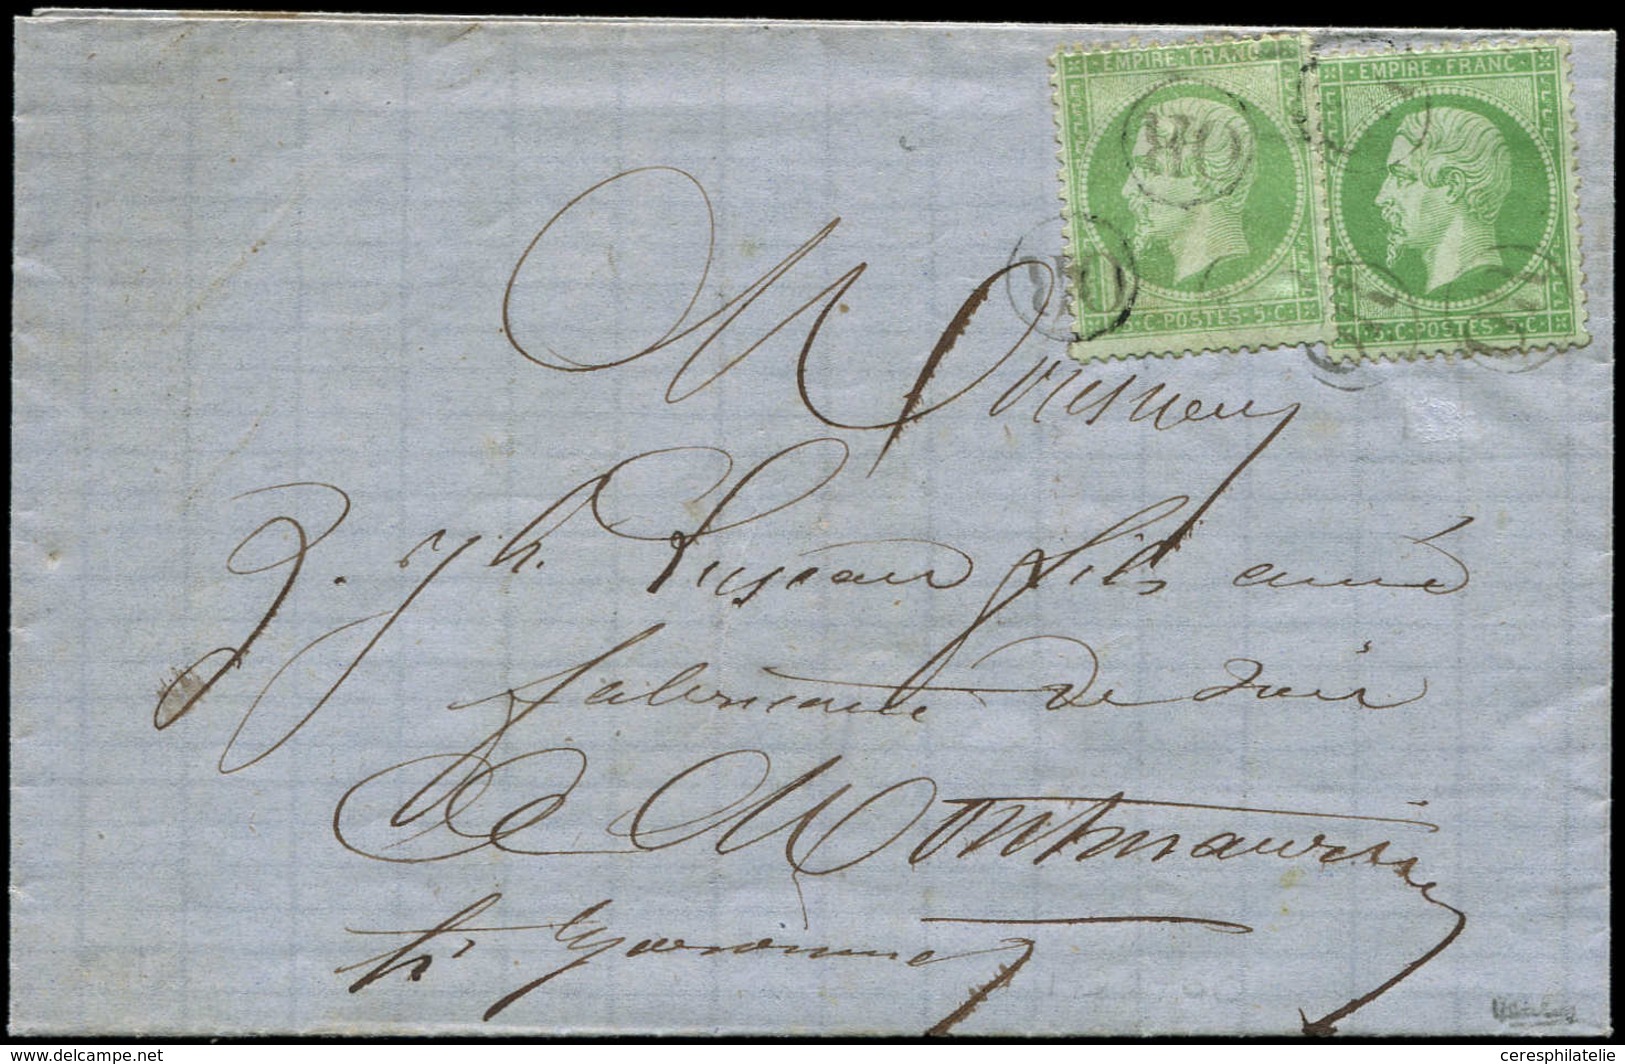 EMPIRE·FRANC·
5·C·POSTES·5·C·
EMPIRE·FRANC·
5·C·POSTES·5·C·
OR
OR
Monsieur
J. Jph. fils ainé
fabricant de
de Montmaurin
hte Garonne
delcampe.net
ceresphilatelie